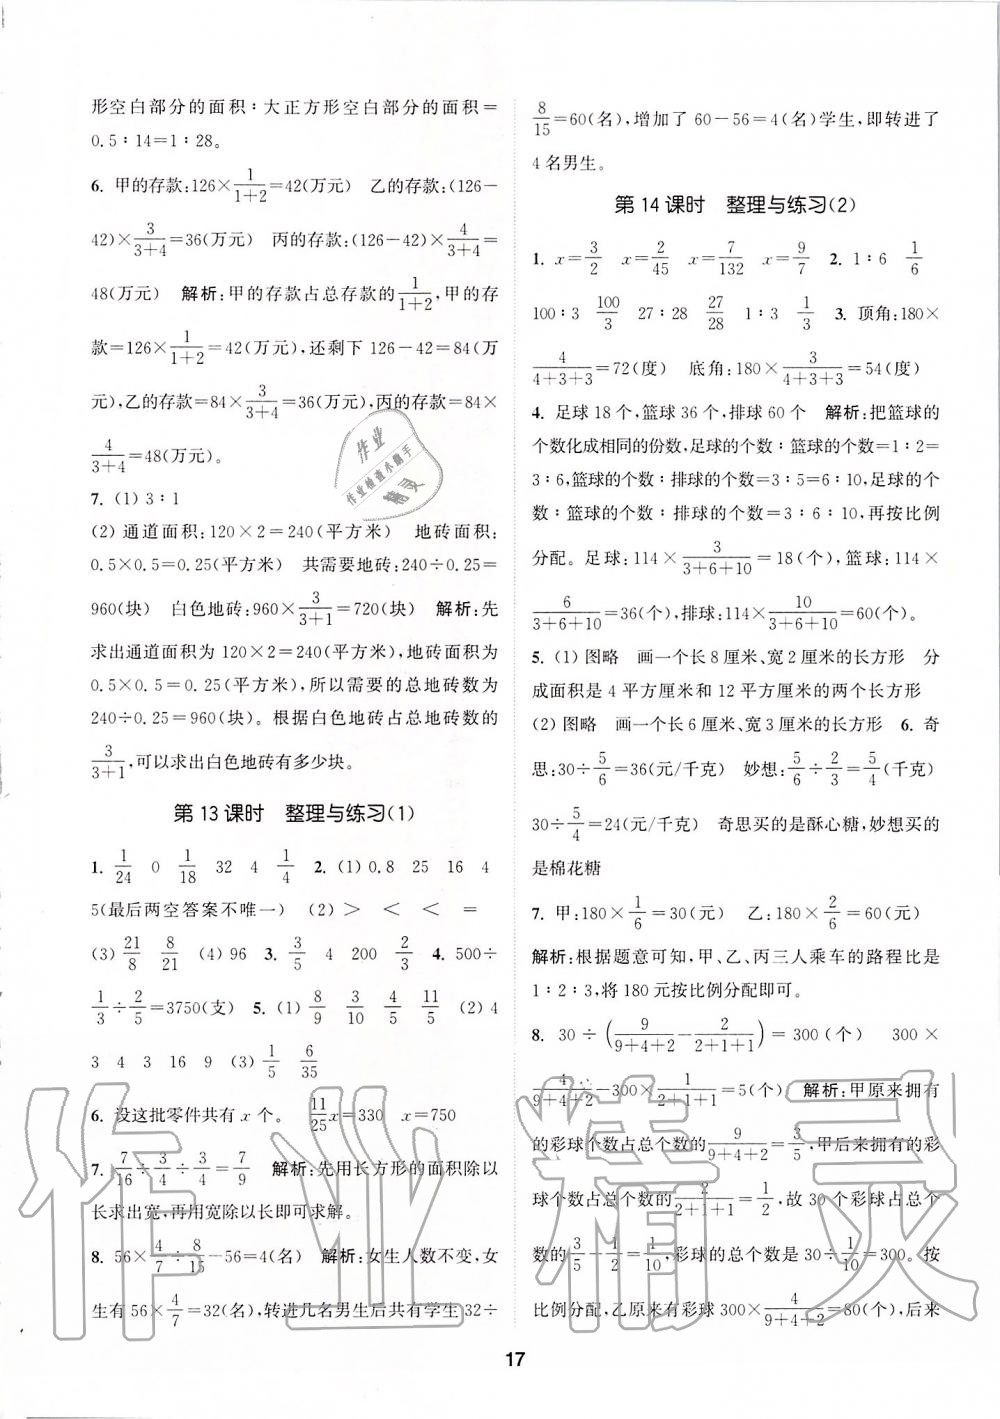 形空白部分的面积∶大正方形空白部分的面积=
0.5∶14=1∶28。
6. 甲的存款:126×1/(1+2)=42(万元) 乙的存款:(126-
42)×3/(3+4)=36(万元) 丙的存款:(126-42)×4/(3+4)=
48(万元) 解析:甲的存款占总存款的1/(1+2),甲的存
款=126×1/(1+2)=42(万元),还剩下 126-42=84(万
元),乙的存款=84×3/(3+4)=36(万元),丙的存款=84×
4/(3+4)=48(万元)。
7. (1) 3∶1
(2) 通道面积:120×2=240(平方米) 地砖面积:
0.5×0.5=0.25(平方米) 共需要地砖:240÷0.25=
960(块) 白色地砖:960×3/(3+1)=720(块) 解析:先
求出通道面积为 120×2=240(平方米),地砖面积为
0.5×0.5=0.25(平方米),所以需要的总地砖数为
240÷0.25=960(块)。根据白色地砖占总地砖数的
3/(3+1),可以求出白色地砖有多少块。
第 13 课时 整理与练习(1)
1. 1/24 0 1/18 32 4 1/4 2. (1) 0.8 25 16 4
5(最后两空答案不唯一) (2) > < < =
(3) 21/8 8/21 (4) 96 3. 3/5 4 200 2/3 4. 500÷
1/3÷2/5=3750(支) 5. (1) 8/9 3/10 4/5 11/5 (2) 4
3 4 3 16 9 (3) 1/5 6/35
6. 设这批零件共有 x 个。 11/25x=330 x=750
7. 7/16÷3/4÷3/4=7/9 解析:先用长方形的面积除以
长求出宽,再用宽除以长即可求解。
8. 56×4/7÷8/15-56=4(名) 解析:女生人数不变,女
生有 56×4/7=32(名),转进几名男生后共有学生 32÷
8/15=60(名),增加了 60-56=4(名)学生,即转进了
4 名男生。
第 14 课时 整理与练习(2)
1. x=3/2 x=2/45 x=7/132 x=9/7 2. 1∶6 1/6
100∶3 100/3 27∶28 27/28 1∶3 1/3 3. 顶角:180×
4/(4+3+3)=72(度) 底角:180×3/(4+3+3)=54(度)
4. 足球 18 个,篮球 36 个,排球 60 个 解析:把篮球的
个数化成相同的份数,足球的个数∶篮球的个数=1∶2=
3∶6,篮球的个数∶排球的个数=3∶5=6∶10,足球的个
数∶篮球的个数∶排球的个数=3∶6∶10,再按比例
分配。足球:114×3/(3+6+10)=18(个),篮球:114×
6/(3+6+10)=36(个),排球:114×10/(3+6+10)=60(个)。
5. (1) 图略 画一个长 8 厘米、宽 2 厘米的长方形 分
成面积是 4 平方厘米和 12 平方厘米的两个长方形
(2) 图略 画一个长 6 厘米、宽 3 厘米的长方形 6. 奇
思:30÷5/6=36(元/千克) 妙想:5/6÷2/3=5/4(千克)
30÷5/4=24(元/千克) 奇思买的是酥心糖,妙想买的
是棉花糖
7. 甲:180×1/6=30(元) 乙:180×2/6=60(元)
解析:根据题意可知,甲、乙、丙三人乘车的路程比是
1∶2∶3,将 180 元按比例分配即可。
8. 30÷(9/(9+4+2)-2/(2+1+1))=300(个) 300×
4/(9+4+2)-300×1/(2+1+1)=5(个) 解析:甲原来拥有
的彩球个数占总个数的9/(9+4+2)=3/5,甲后来拥有的彩
球个数占总个数的2/(2+1+1)=1/2,故 30 个彩球占总个
数的3/5-1/2=1/10,彩球的总个数是 30÷1/10=300。按
比例分配,乙原来有彩球 300×4/(9+4+2)=80(个),后来
17
作业
作业检查小助手
精灵
作业精灵